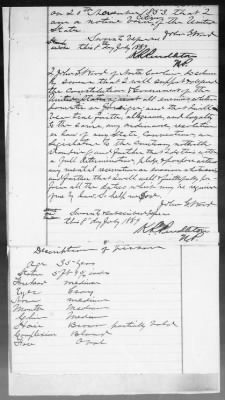 on 20th November 1853 that I
am a native Citizen of the United
State
John G Ward
Sworn to before
this 8 day July 1889
R K Pendleton
N.P.
I John G Ward of North Carolina do solemn
ly swear that I will support
the Constitution & Government of the
United States against all enemies whether
Domestic or foreign; and that I will
bear true faith, allegiance, and loyalty
to the same, any ordinance, resolution
or law of any State Convention, or
Legislature to the Contrary notwith
standing; and further that I do this with
a full determination, pledge & purpose without
any mental reservation or evasion whatsoever
and further that I will well & faithfully per
form all the duties which may be required
of me by law. So help me God.
John G Ward
Sworn & subscribed before
this 8 day July 1889
R K Pendleton
N.P.
Description of Person
Age 35 years
Stature 5 ft
Forehead medium
Eyes
Nose medium
Mouth Medium
Chin Medium
Hair Brown partially bald
Complexion Blond
Face Oval